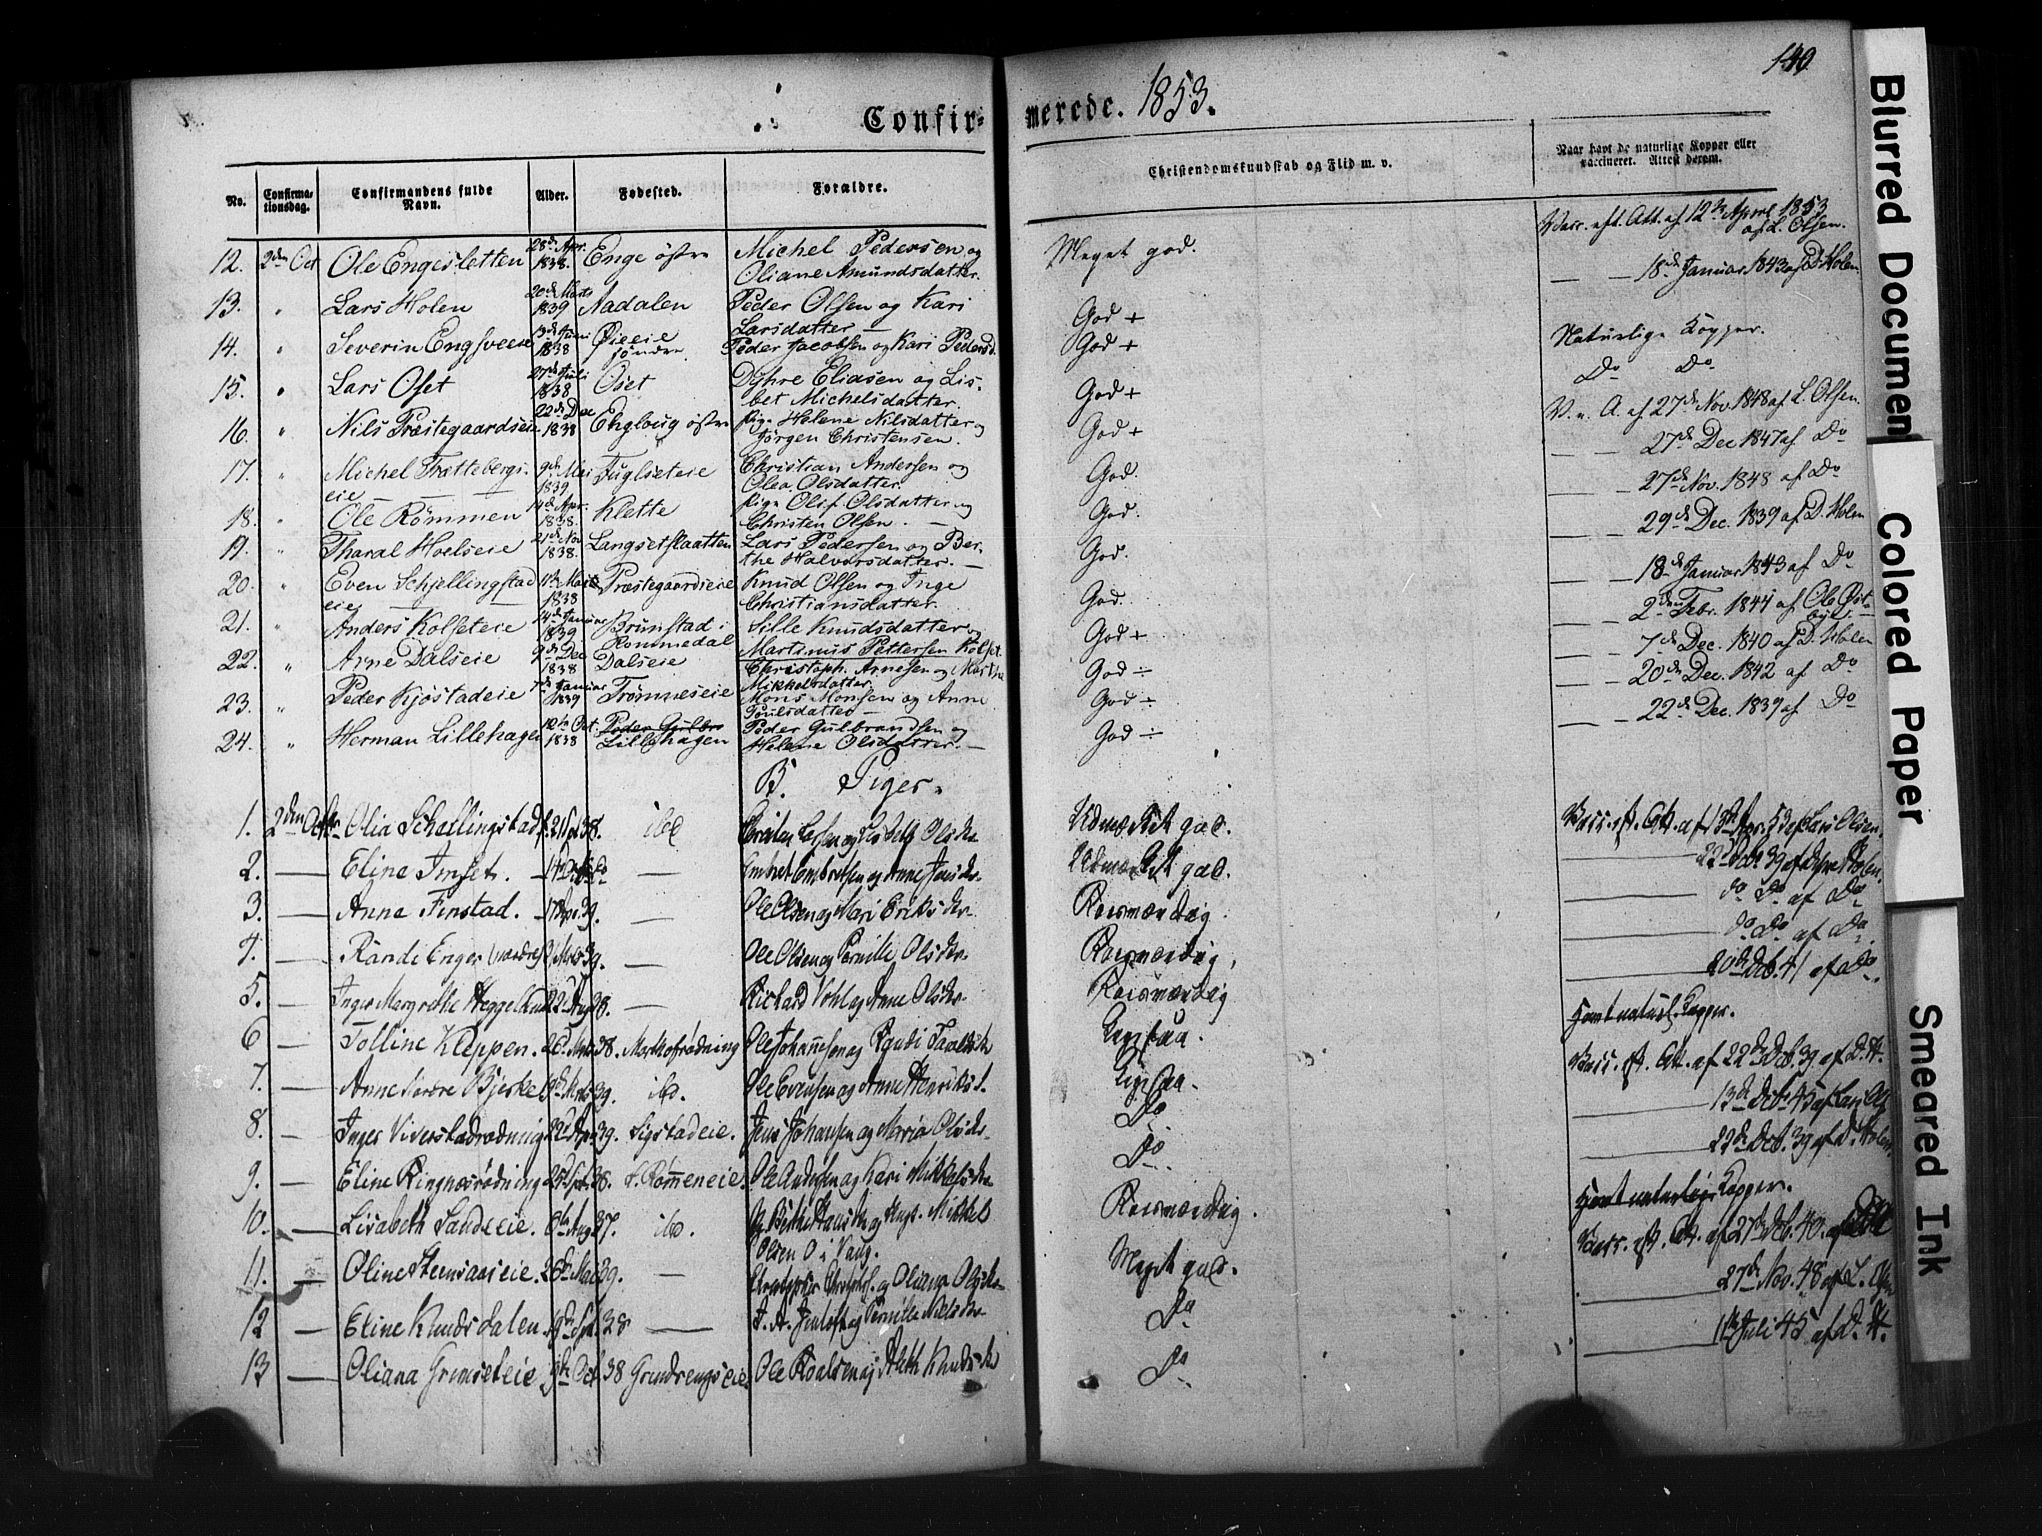 140.
Confirmerede. 1853.
No.
Confirmationsdag.
Confirmandens fulde Navn.
Alder.
Fødested.
Forældre.
Christendomskundskab og Flid m. v.
Naar havt de naturlige Kopper eller vaccineret. Attest derom.
12. 2den Oct Ole Engesletten 28de Apr. 1838. Enge østre Michel Pedersen og Oliane Amundsdatter. Meget god. Vacc. eft. Att. af 12te April 1853 af L. Olsen.
13. " Lars Holen 20de Marts 1839 Aadalen Peder Olsen og Kari Larsdatter — God + — — 18de Januar 1843 af D. Holen
14. " Severin Engsveeie 13de Juni 1838 Øieeie søndre Peder Jacobsen og Kari Pedersd. God + Naturlige Kopper.
15. " Lars Oset 27de Juli 1838 Oset Dyhre Eliasen og Lisbet Michelsdatter. God + Do Do
16. " Nils Præstegaardseie 22de Dec 1838 Engloug østre Pige Helene Nilsdatter og Jørgen Christensen. God + V. e. A. af 27de Nov. 1848 af L. Olsen.
17. " Michel Trættebergseie 9de Mai 1839 Fuglseteie Christian Andersen og Olea Olsdatter. God. — — 27de Dec 1847 af Do
18. " Ole Rømmen 14de Apr. 1838. Klette Pige Olif. Olsdatter og Christen Olsen. — God. — — 27de Nov. 1848 af Do
19. " Tharal Hoelseie 21de Nov 1838. Langsetslaatten Lars Pedersen og Berthe Halvorsdatter. — God. — — 29de Dec. 1839 af D. Holen
20. " Even Schjellingstadeie 11te Marts 1838 Præstegaardseie Knud Olsen og Inge Christiansdatter. God. — — 18de Januar 1843 af Do
21. " Anders Kolseteie 14de Januar 1839 Brunstad i Rommedal Sille Knudsdatter og Martinus Pettersen Kolset. God + — — 2den Febr. 1844 af Ole Østbye.
22. " Arne Dalseie 9de Dec 1838 Dalseie Christoph. Arnesen og Marthe Mikkelsdatter. God ÷ — — 7de Dec. 1840 af D. Holen
23. " Peder Kjostadeie 7de Januar 1839 Trømneseie Mons Monsen og Anne Poulsdatter — God ÷ — — 20de Dec. 1842 af Do
24. " Herman Lillehagen 12te Oct. 1838 Peder Gulbr Lillehagen Peder Gulbrandsen og Helene Olsdatter. — God ÷ — — 22de Dec. 1839 af Do
B. Piger.
1. 2den Octbr Olia Schellingstad 38. ibd Olsdtr Udmærket god. Vacc. eft. Att. af 13de Apr. 53 af Lars Olsen.
2. — Eline Imset. — Embret Embretsen og Anne Jensdtr. Udmærket god. — 22de Dcb 39 af Dyre Holen.
3. — Anne Finstad. 39. — Ole Olsen og Mari Eriksdtr. Roesværdig. — do Do af Do
4. — Randi Enger (nordre) 39. — Ole Olsen og Pernille Olsdtr. Roesværdig. — do Do af Do
5. — Inger Margrethe Heggelund 22de Aug 38. Richard Vohl og Anne Olsdtr Roesværdig — 20de Dcb. 41 af Do
6 — Tolline Kleppen. 26de Mrts 38. Morthofrødning Ole Johannesen og Randi Havt naturl. Kopper.
7. — Anne Bjerke 39. ibd. Ole Evensen og Anne Henriksd. Vacc. eft. Att. af 22de Dcb. 39 af D. H.
8. — Inger Viverstadrødning 22de Apr 39. Sigstadeie. Jens Johansen og Maria Olsdtr. Do — 13de Dcb. 45 af Lars Ols
9. — Eline Ringnesrødning 25de Spt. 38. Rømeneie. Ole Andersen og Kari Mikkelsdtr Do. — 22de Dcb. 39 af D. Holen.
10. — Lisabeth Sandeeie. 8de Aug 37. ibd. Mikkel Olsen i Vang. Roesværdig. Havt naturlige Kopper.
11. — Oline Steensaaseie. 26de Mai 39. — og Oliana Olsdtr Meget god. Vacc. eft. Att. af 27de Dcb. 40. af
12 — Eline Knudsdalen. 19de Spt. 38 — Pernille Nielsdtr Do — 27de Nov. 48 af L. Olsen
13 — Oliana Grimseteie 9de Oct 38 Grundsengseie. Ole Roalsen og Aleth Knudsdtr Do — 11te Juli 45 af D. H.
Blurred Document
Colored Paper
Smeared Ink